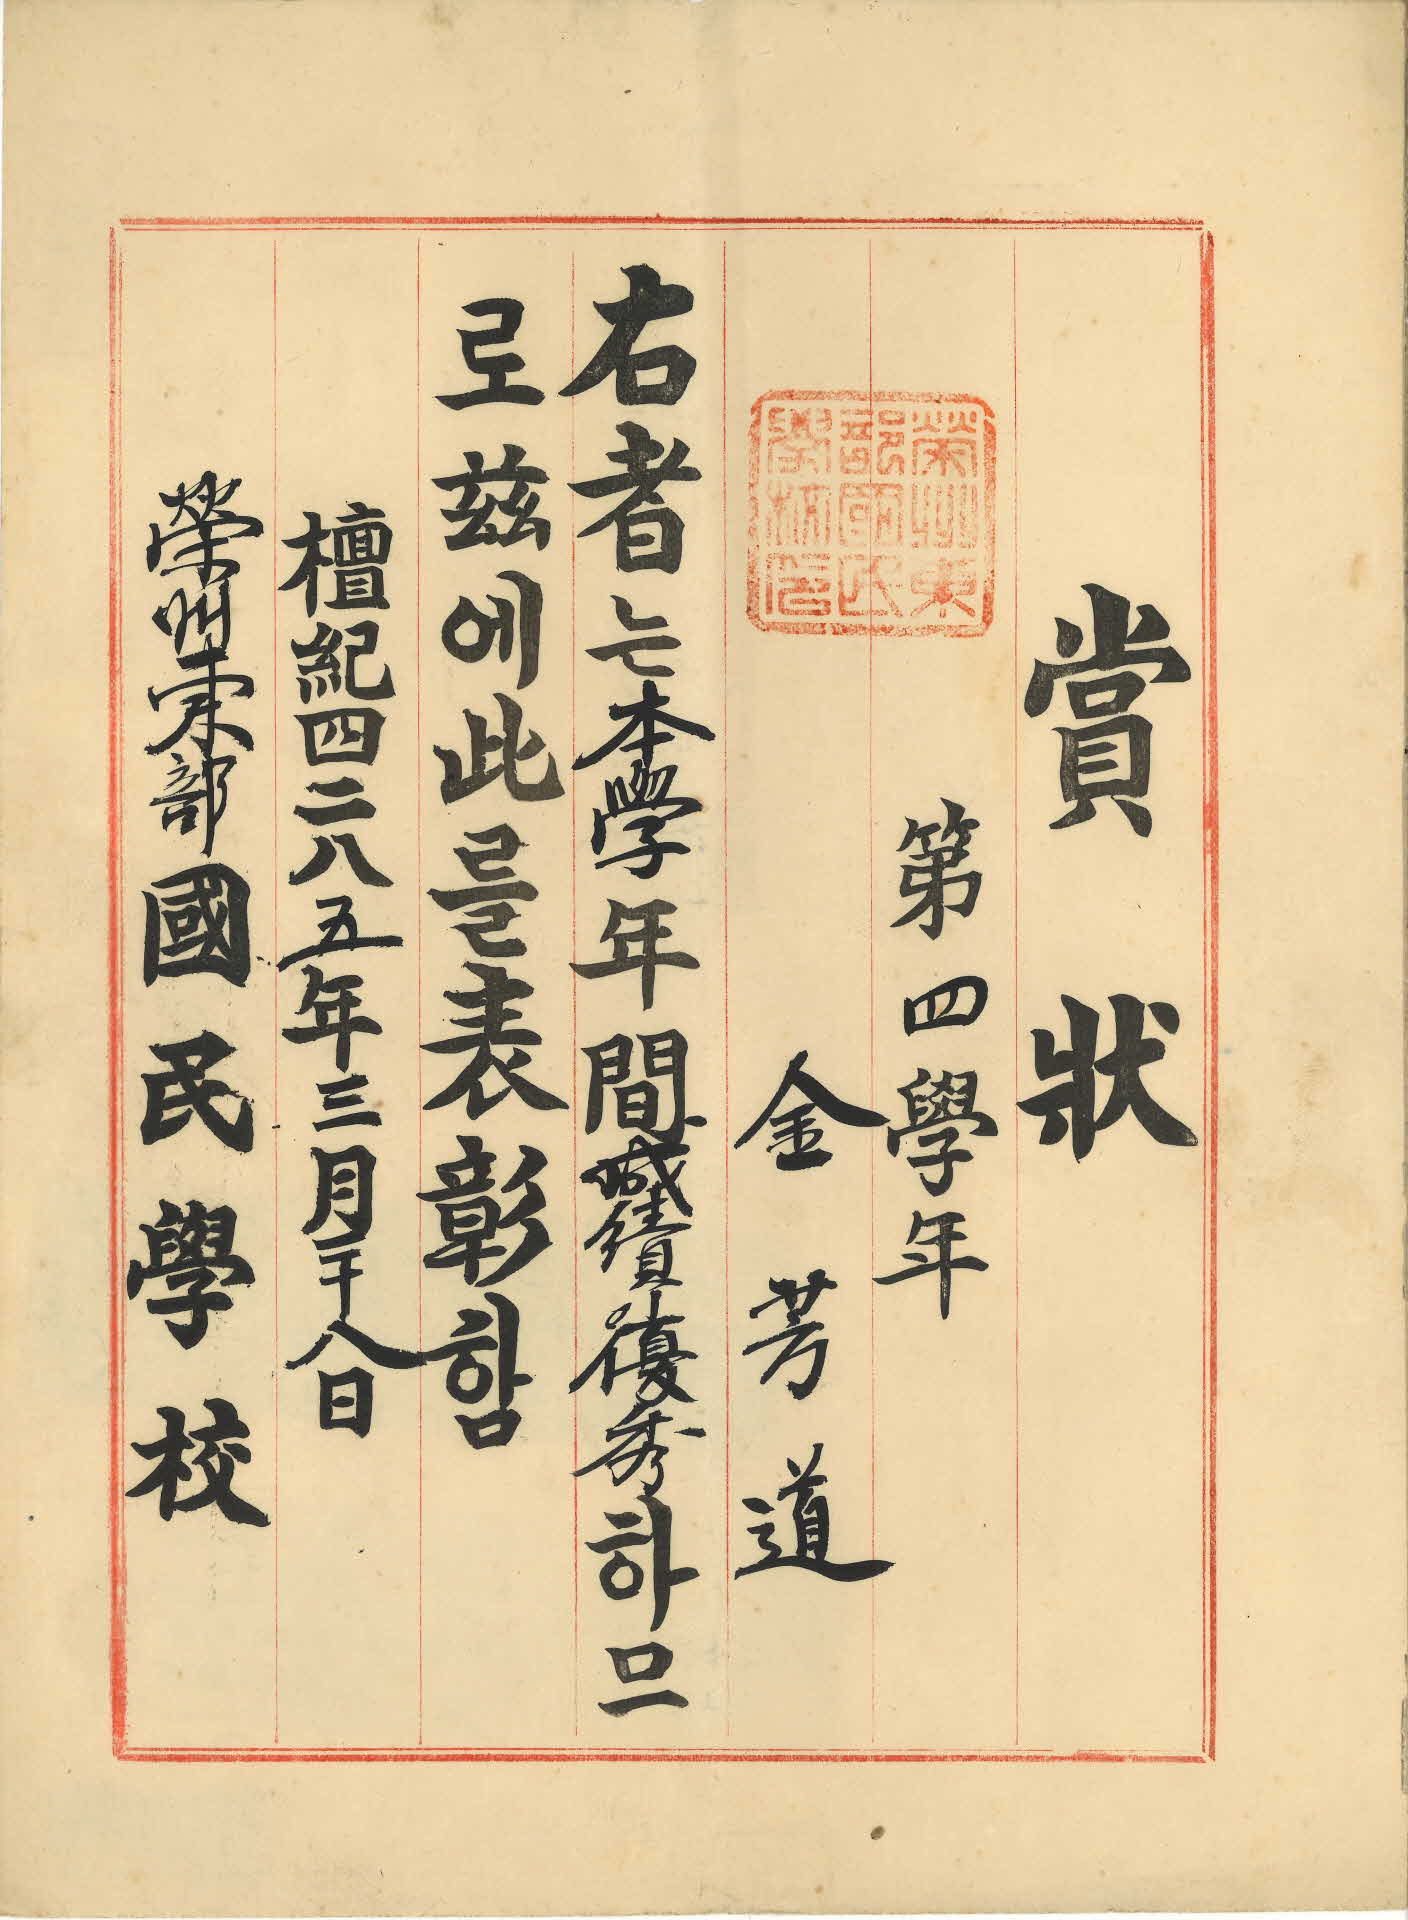 賞狀
第四學年
金芳道
榮州東
部國民
學校印
右者는本學年間成績優秀하므
로兹에此를表彰함
檀紀四二八五年三月二十八日
榮州東部國民學校